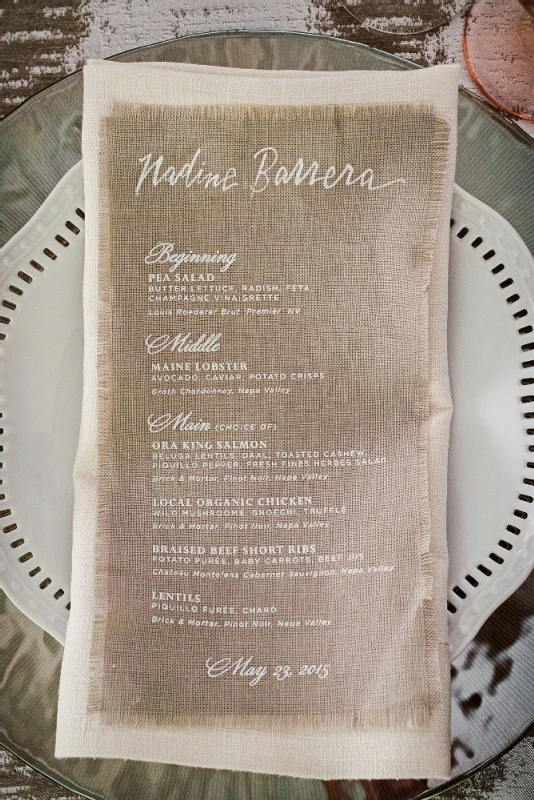 Nadine Barrera
Beginning
PEA SALAD
BUTTER LETTUCE, RADISH, FETA,
CHAMPAGNE VINAIGRETTE
Louis Roederer Brut 'Premier' NV
Middle
MAINE LOBSTER
AVOCADO, CAVIAR, POTATO CRISPS
Groth Chardonnay, Napa Valley
Main (CHOICE OF)
ORA KING SALMON
BELUGA LENTILS, DAAL, TOASTED CASHEW,
PIQUILLO PEPPER, FRESH FINES HERBES SALAD
Brick & Mortar, Pinot Noir, Napa Valley
LOCAL ORGANIC CHICKEN
WILD MUSHROOMS, GNOCCHI, TRUFFLE
Brick & Mortar, Pinot Noir, Napa Valley
BRAISED BEEF SHORT RIBS
POTATO PURÉE, BABY CARROTS, BEEF JUS
Chateau Montelena Cabernet Sauvignon, Napa Valley
LENTILS
PIQUILLO PURÉE, CHARD
Brick & Mortar, Pinot Noir, Napa Valley
May 23, 2015